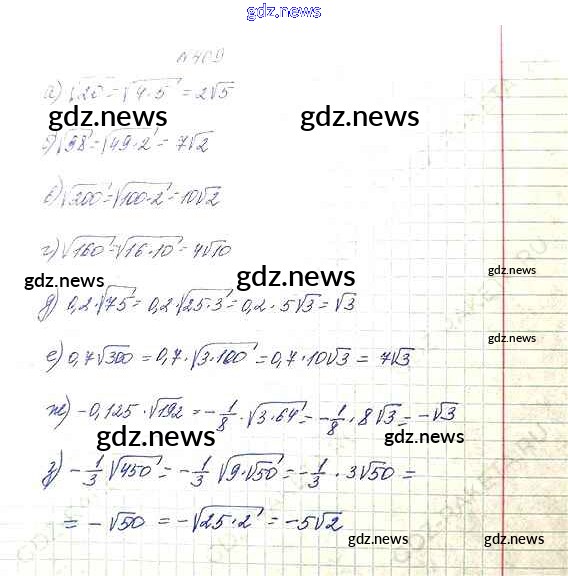 gdz.news
№409
а) √20 = √4·5 = 2√5
gdz.news gdz.news
б) √98 = √49·2 = 7√2
в) √200 = √100·2 = 10√2
г) √160 = √16·10 = 4√10
gdz.news gdz.news gdz.news
д) 0,2·√75 = 0,2·√25·3 = 0,2·5√3 = √3
gdz.news
е) 0,7√300 = 0,7·√3·100 = 0,7·10√3 = 7√3
ж) -0,125·√192 = -1/8·√3·64 = -1/8·8√3 = -√3
gdz.news gdz.news
з) -1/3√450 = -1/3√9·√50 = -1/3·3√50 =
= -√50 = -√25·2 = -5√2
gdz.news gdz.news
GDZ-RAKETA.RU